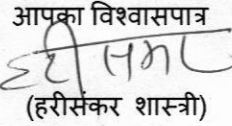 आपका विश्वासपात्र
(हरीसंकर शास्त्री)